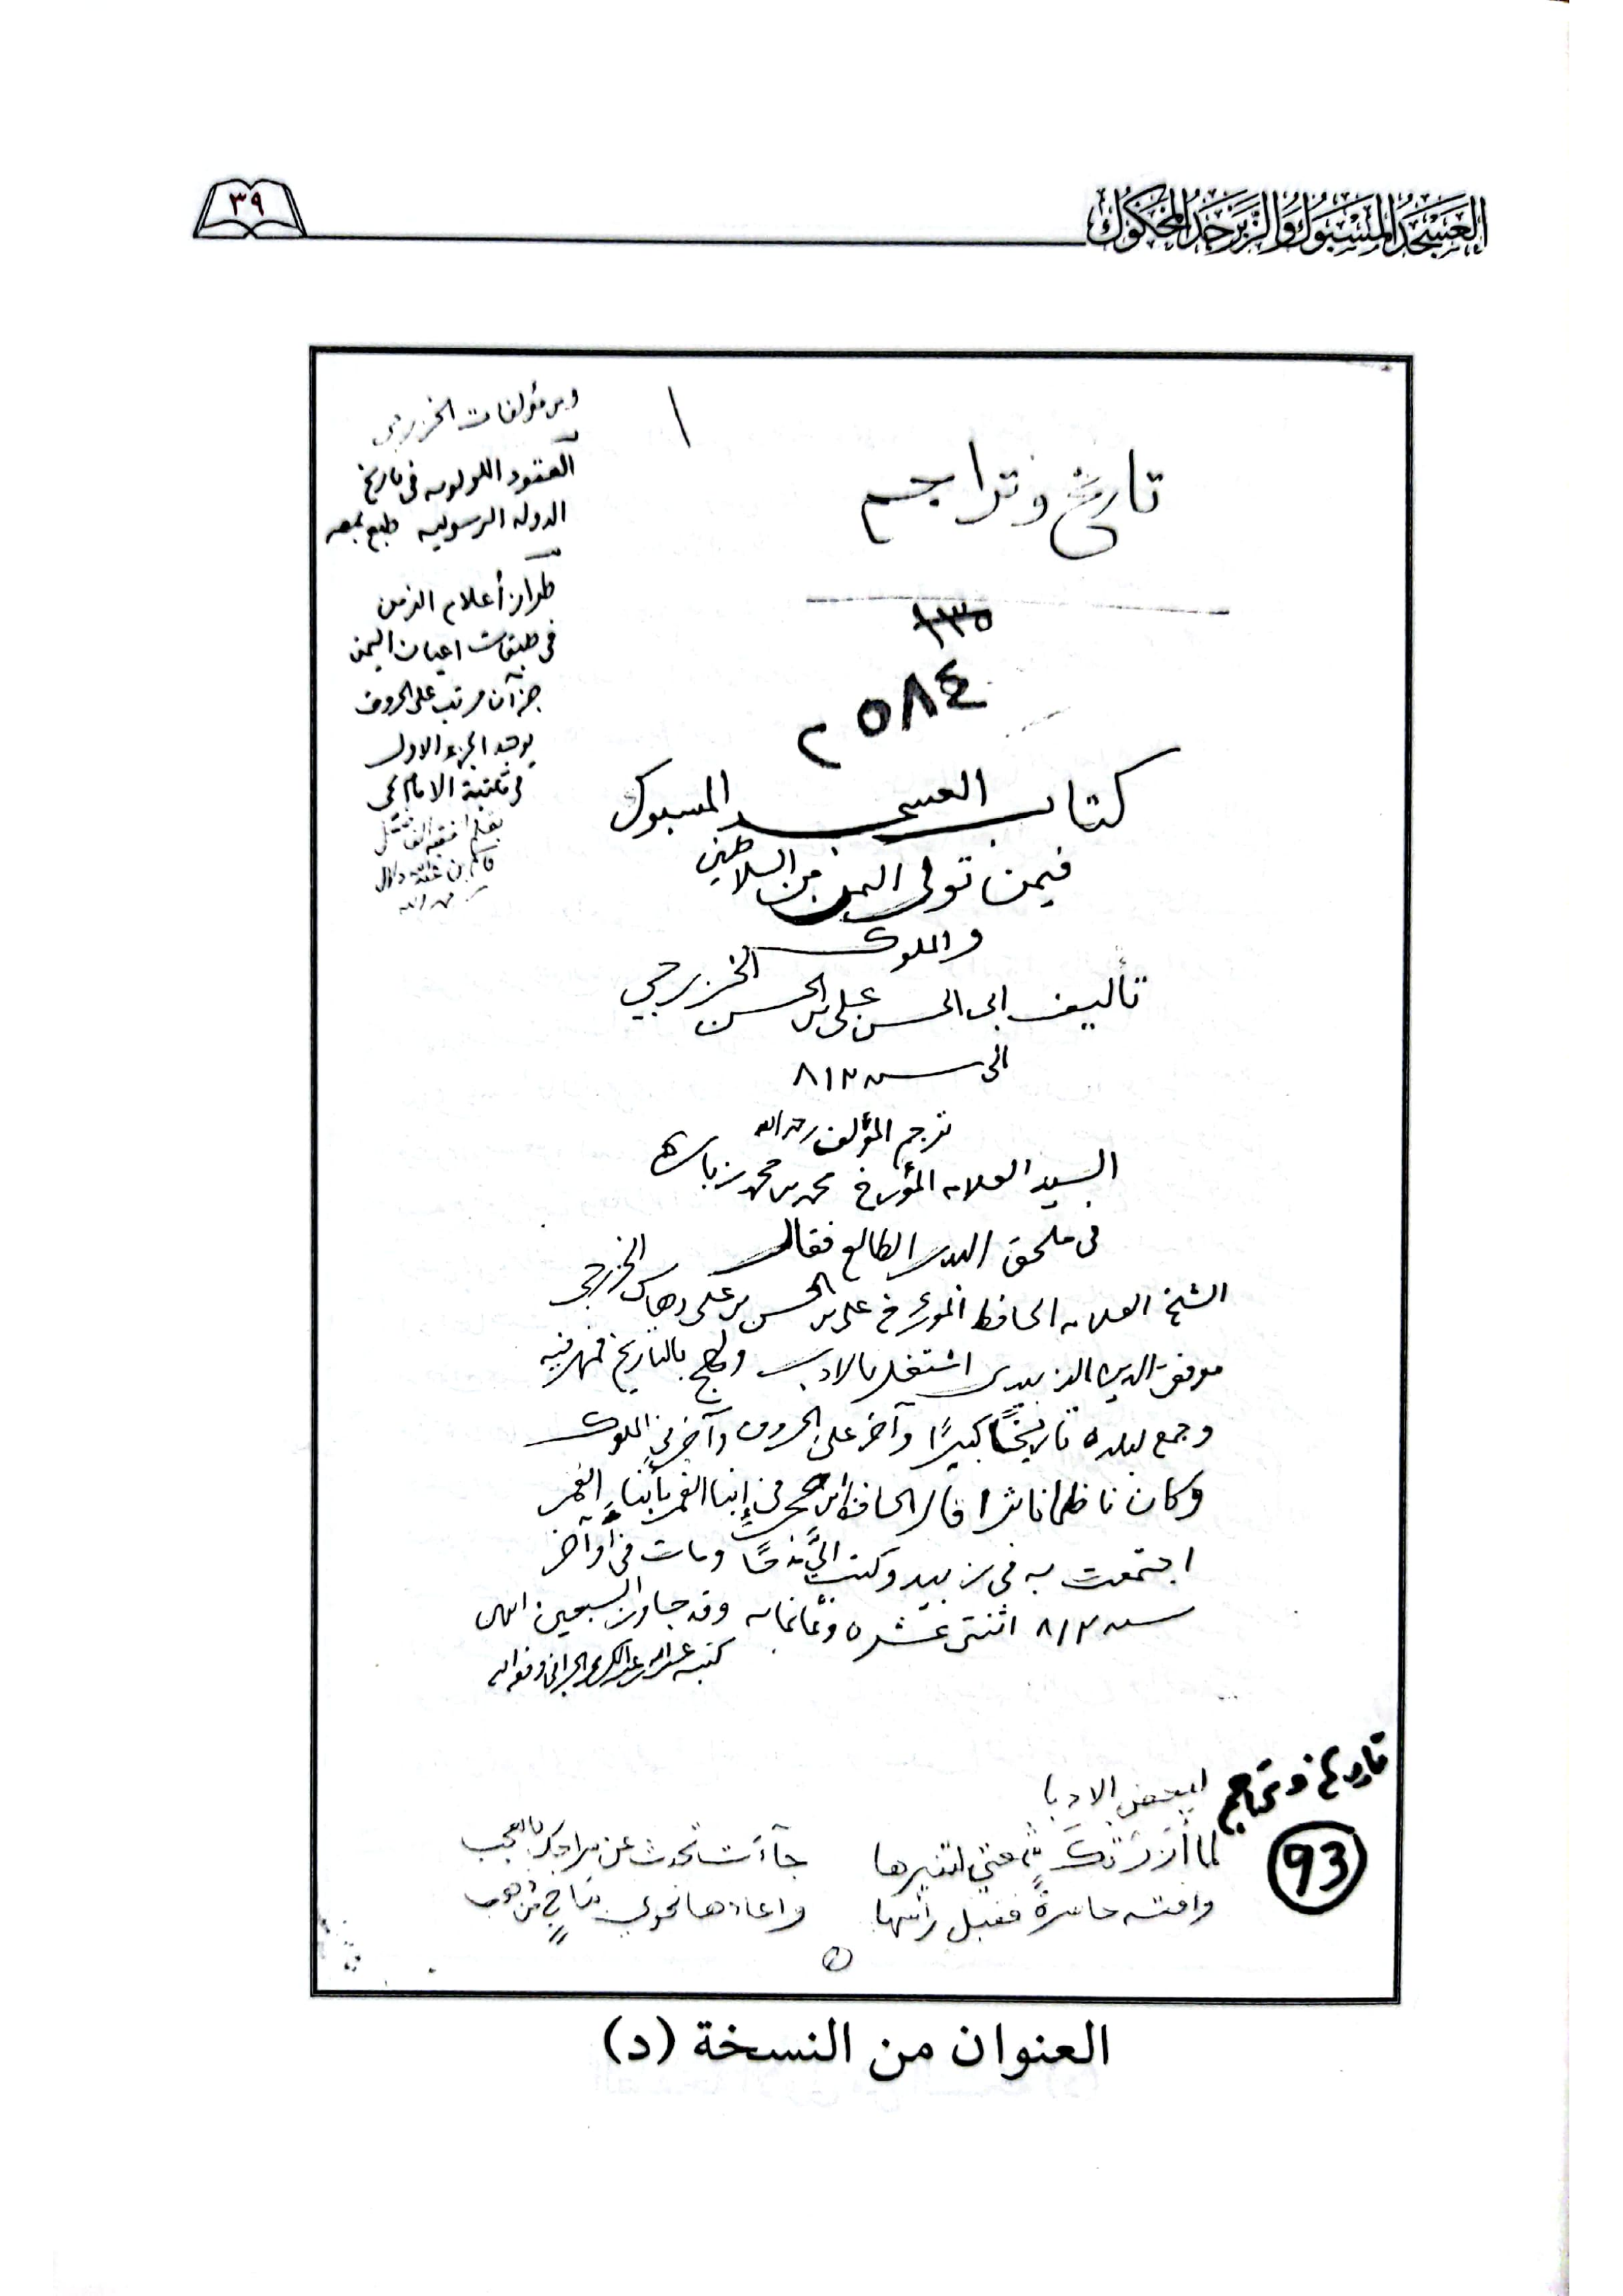 العسجد المسبوك والزبرجد المحكوك
٣٩
ومن مؤلفات الخزرجي
العقود اللولويه في تاريخ
الدوله الرسوليه طبع بمصر
طراز أعلام الزمن
في طبقات اعيان اليمن
جزآن مرتب على الحروف
يوجد الجزء الاول
في مكتبة الامام يحي
بقلم
تاريخ وتراجم
١٣٥
٢٥٨٤
كتاب العسجد المسبوك
فيمن تولى اليمن من السلاطين
والملوك
تأليف ابي الحسن علي بن الحسن الخزرجي
الى سنه ٨١٢
ترجم المؤلف رحمه الله
السيد العلامه المؤرخ محمد بن محمد زباره
في ملحق البدر الطالع فقال
الشيخ العلامه الحافظ المؤرخ علي بن الحسن بن علي وهاس الخزرجي
موفق الدين الزبيدي اشتغل بالادب ولهج بالتاريخ فمهر فيه
وجمع لبلده تاريخًا كبيرًا وآخر على الحروف وآخر في الملوك
وكان ناظما ناثرا قال الحافظ ابن حجر في إنبا الغمر بأبناء الغمر
اجتمعت به في زبيد وكتب اليَّ مدحًا ومات في أواخر
سنه ٨١٢ اثنتى عشره وثمانمايه وقد جاوز السبعين انتهى
كتبه عبدالله بن عبدالكريم الجرافي وفقه الله
تاريخ وتراجم
93
لبعض الادبا
لما أزرتك شمعتي لتنيرها جآءت تحدث عن سراجك بالعجب
وافته حاسرة فقبل رأسها واعادها نحوي بتاج من ذهب
العنوان من النسخة (د)